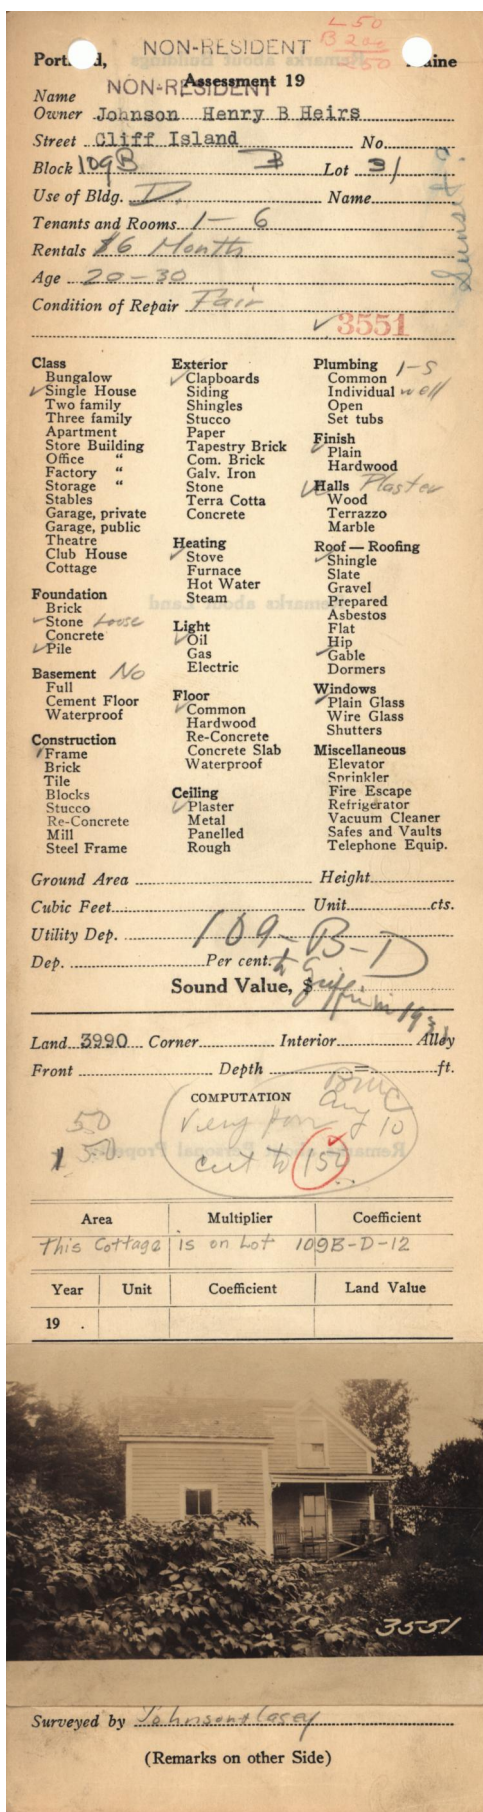 NON-RESIDENT
L 50
B 200
250
Portland, Maine
NON-RESIDENT
Assessment 19
Name
Owner Johnson Henry B Heirs
Street Cliff Island No.
Block 109B B Lot 31
Use of Bldg. D. Name
Tenants and Rooms 1 - 6
Rentals $6 Month
Age 20-30
Condition of Repair Fair
3551
Class
Bungalow
Single House
Two family
Three family
Apartment
Store Building
Office "
Factory "
Storage "
Stables
Garage, private
Garage, public
Theatre
Club House
Cottage
Foundation
Brick
Stone Loose
Concrete
Pile
Basement No
Full
Cement Floor
Waterproof
Construction
Frame
Brick
Tile
Blocks
Stucco
Re-Concrete
Mill
Steel Frame
Exterior
Clapboards
Siding
Shingles
Stucco
Paper
Tapestry Brick
Com. Brick
Galv. Iron
Stone
Terra Cotta
Concrete
Heating
Stove
Furnace
Hot Water
Steam
Light
Oil
Gas
Electric
Floor
Common
Hardwood
Re-Concrete
Concrete Slab
Waterproof
Ceiling
Plaster
Metal
Panelled
Rough
Plumbing 1-S
Common
Individual well
Open
Set tubs
Finish
Plain
Hardwood
Halls Plaster
Wood
Terrazzo
Marble
Roof — Roofing
Shingle
Slate
Gravel
Prepared
Asbestos
Flat
Hip
Gable
Dormers
Windows
Plain Glass
Wire Glass
Shutters
Miscellaneous
Elevator
Sprinkler
Fire Escape
Refrigerator
Vacuum Cleaner
Safes and Vaults
Telephone Equip.
Ground Area Height
Cubic Feet Unit cts.
Utility Dep. 109-B-D
Dep. Per cent.
to Griffin in
Sound Value, $
Land 3990 Corner Interior Alley
Front Depth = ft.
COMPUTATION
Aug 10
50
150
Very poor
cut to 150
Area Multiplier Coefficient
This Cottage is on Lot 109B-D-12
Year Unit Coefficient Land Value
19 .
3551
Surveyed by Johnson + Casey
(Remarks on other Side)